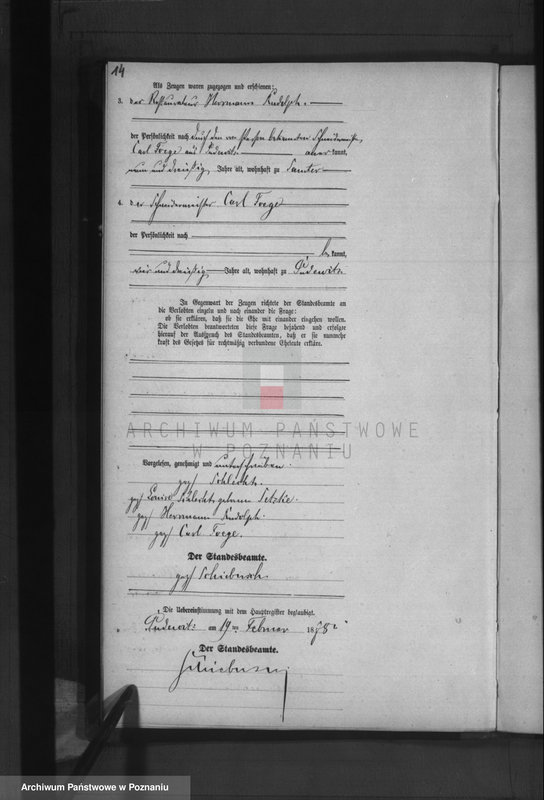 14
Als Zeugen waren zugezogen und erschienen:
3. der Restaurateur Hermann Rudolph.
der Persönlichkeit nach durch den bekannten Schneidermeister
Carl Foege aus Pudewitz anerkannt,
neun und dreißig Jahre alt, wohnhaft zu Samter
4. der Schneidermeister Carl Foege
der Persönlichkeit nach
bekannt,
vier und dreißig Jahre alt, wohnhaft zu Pudewitz
In Gegenwart der Zeugen richtete der Standesbeamte an
die Verlobten einzeln und nach einander die Frage:
ob sie erklären, daß sie die Ehe mit einander eingehen wollen.
Die Verlobten beantworteten diese Frage bejahend und erfolgte
hierauf der Ausspruch des Standesbeamten, daß er sie nunmehr
kraft des Gesetzes für rechtmäßig verbundene Eheleute erkläre.
ARCHIWUM PAŃSTWOWE
W POZNANIU
Vorgelesen, genehmigt und unterschrieben:
gez/ Schlecht.
gez/ Louise Schlecht geborene
gez/ Hermann Rudolph.
gez/ Carl Foege.
Der Standesbeamte.
gez/
Die Uebereinstimmung mit dem Hauptregister beglaubigt.
Pudewitz am 19ten Februar 1878
Der Standesbeamte.
Archiwum Państwowe w Poznaniu